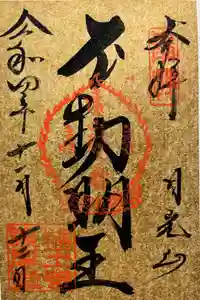 奉拝
月光山
不動明王
令和四年十一月十二日